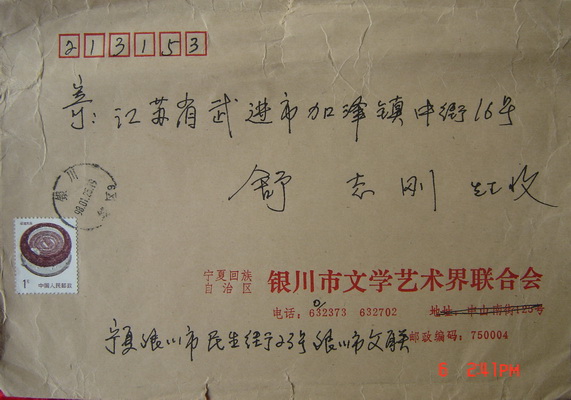 213153
寄：江苏省武进市加泽镇中街16号
舒志刚 收
银川
中国人民邮政
宁夏回族
自治区
银川市文学艺术界联合会
电话：632373 632702
地址：中山南街125号
宁夏银川市民生街23号银川市文联
邮政编码：750004
6 2 41PM